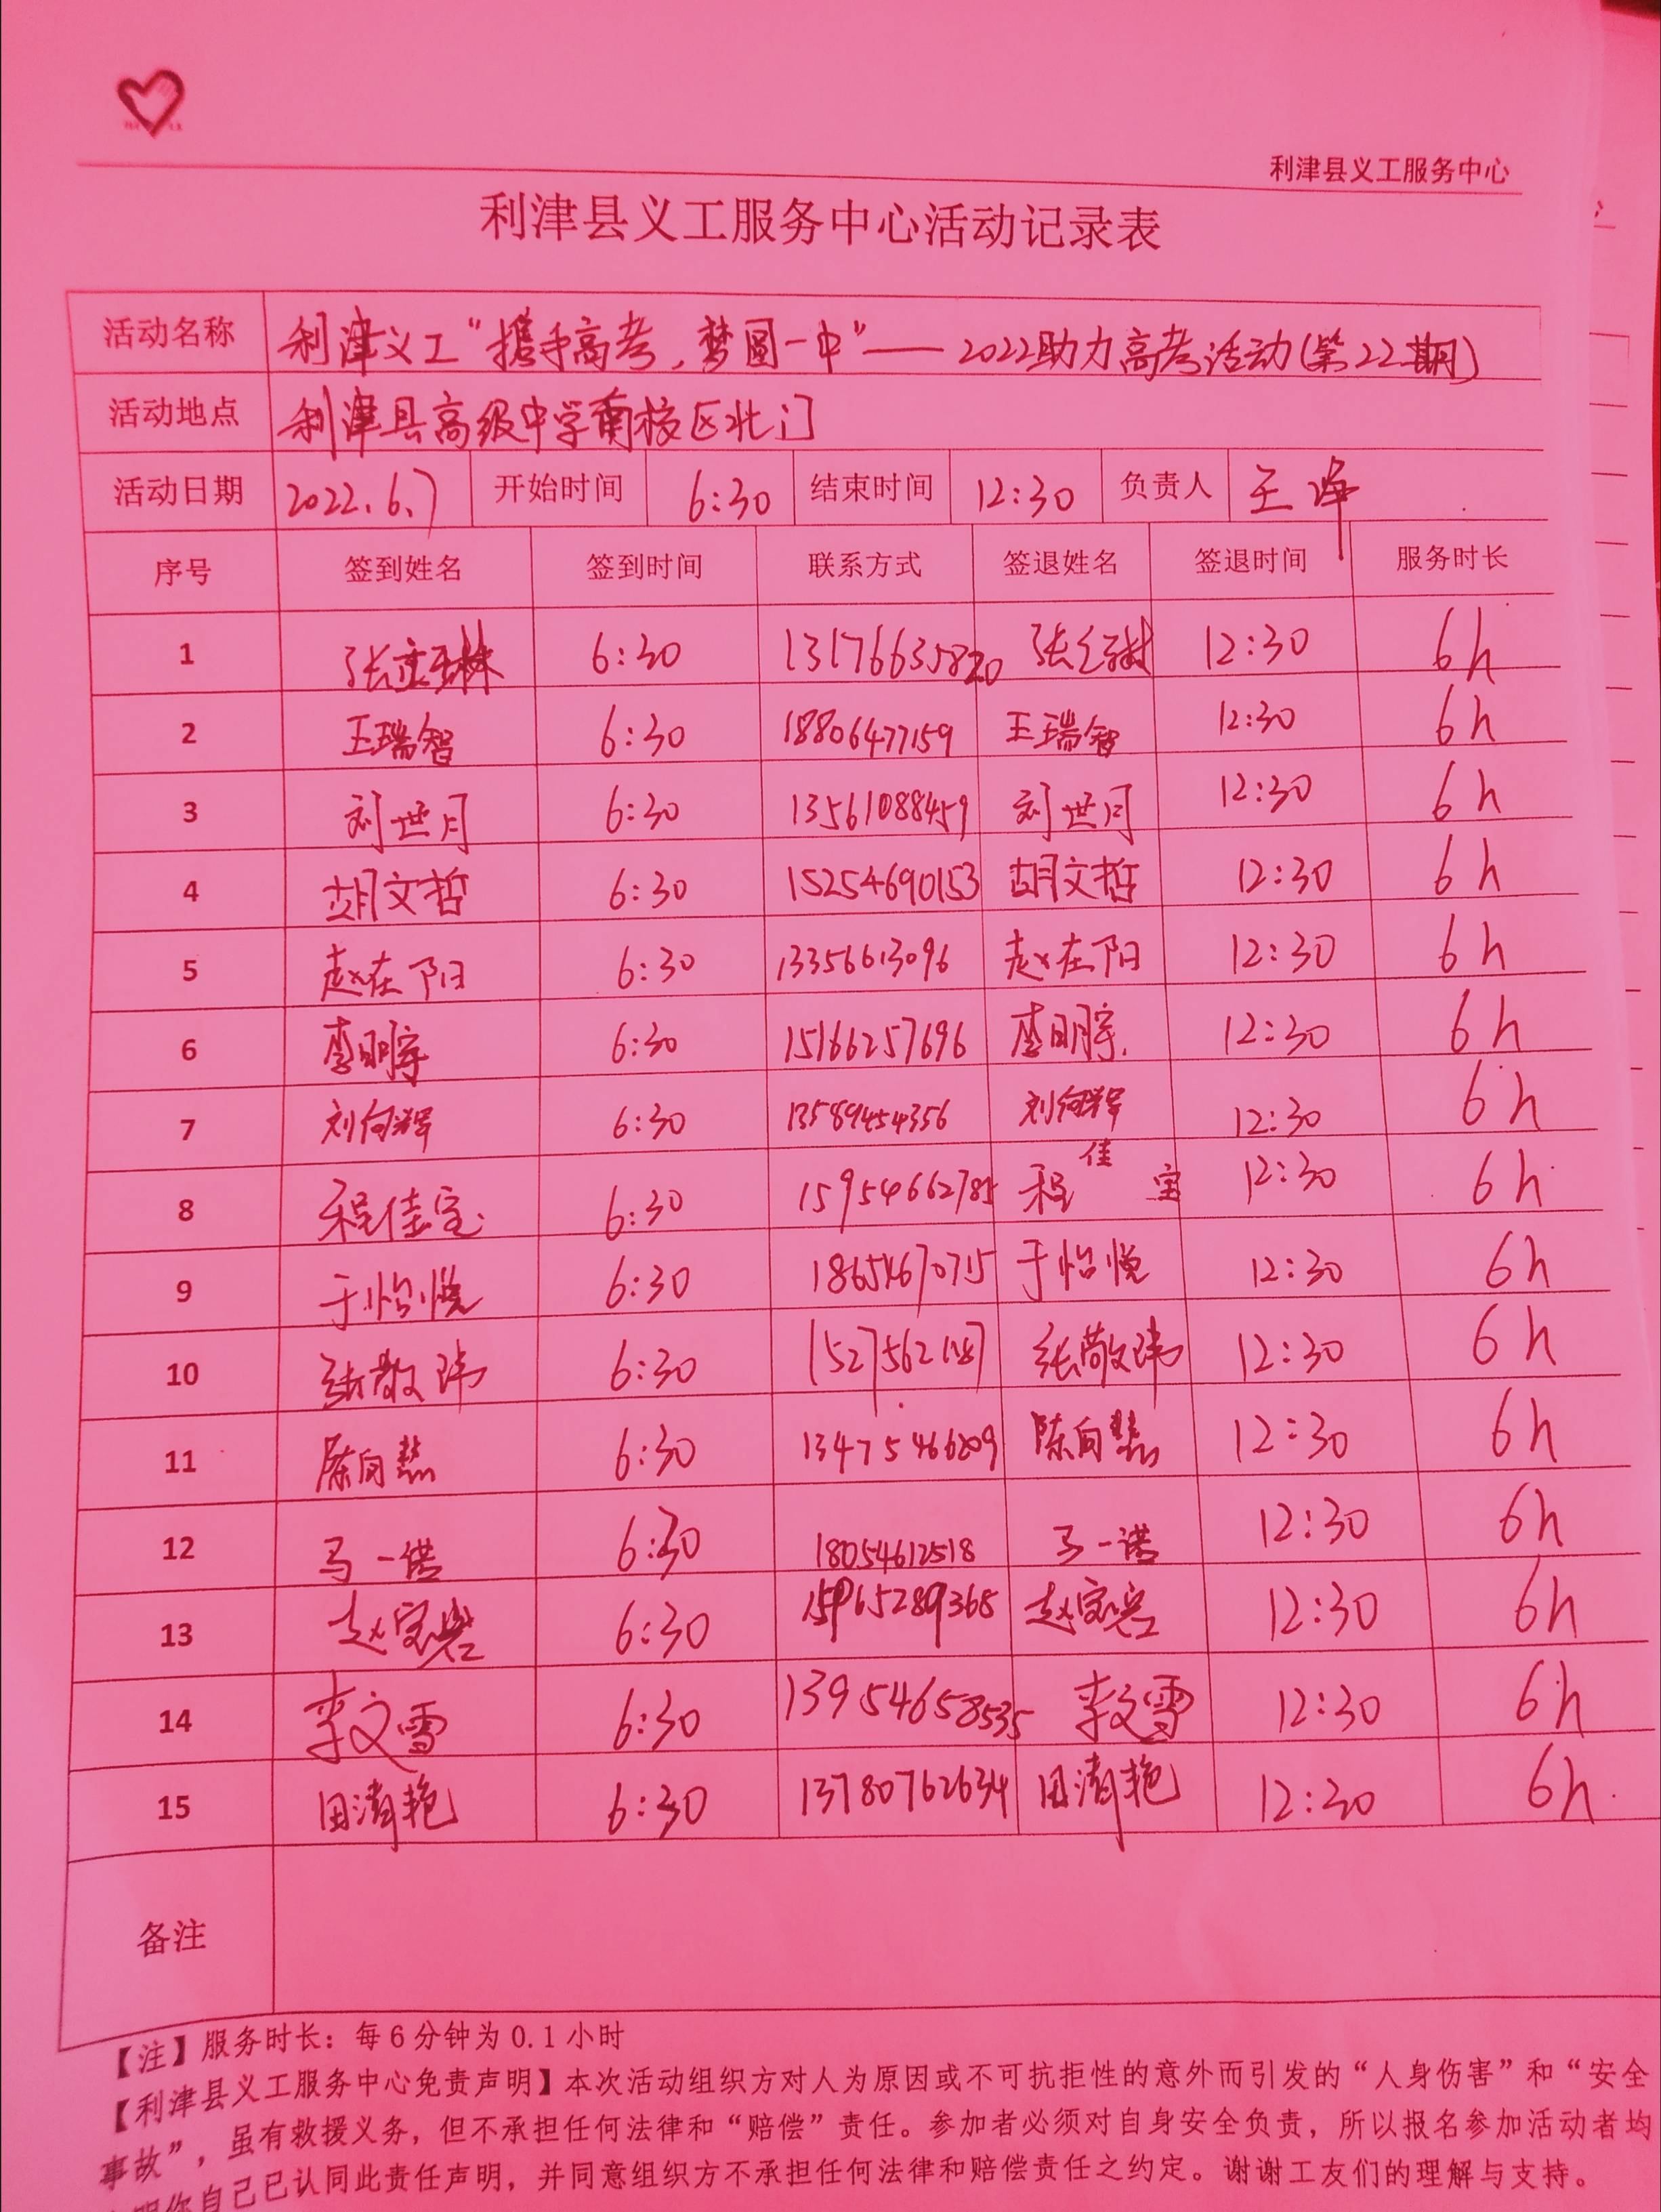 利津县义工服务中心
利津县义工服务中心活动记录表
活动名称 利津义工“携手高考,梦圆一中”——2022助力高考活动(第22期)
活动地点 利津县高级中学南校区北门
活动日期 2022.6.7 开始时间 6:30 结束时间 12:30 负责人 王
序号 签到姓名 签到时间 联系方式 签退姓名 签退时间 服务时长
1 张 6:30 13176635820 张 12:30 6h
2 王瑞智 6:30 18806477159 王瑞智 12:30 6h
3 刘世月 6:30 13561088459 刘世月 12:30 6h
4 胡文哲 6:30 15254690153 胡文哲 12:30 6h
5 赵在阳 6:30 13356613096 赵在阳 12:30 6h
6 李明宇 6:30 15166257696 李明宇 12:30 6h
7 刘向辉 6:30 13589454356 刘向辉 12:30 6h
8 程佳宝 6:30 15954662785 程佳宝 12:30 6h
9 于怡悦 6:30 18654670715 于怡悦 12:30 6h
10 张敬玮 6:30 张敬玮 12:30 6h
11 陈向慧 6:30 13475466209 陈向慧 12:30 6h
12 马一诺 6:30 18054612518 马一诺 12:30 6h
13 赵 6:30 15965289368 赵 12:30 6h
14 李文雪 6:30 13954658535 李文雪 12:30 6h
15 田清艳 6:30 13780762634 田清艳 12:30 6h
备注
【注】服务时长：每6分钟为0.1小时
【利津县义工服务中心免责声明】本次活动组织方对人为原因或不可抗拒性的意外而引发的“人身伤害”和“安全
事故”，虽有救援义务，但不承担任何法律和“赔偿”责任。参加者必须对自身安全负责，所以报名参加活动者均
明你自己已认同此责任声明，并同意组织方不承担任何法律和赔偿责任之约定。谢谢工友们的理解与支持。